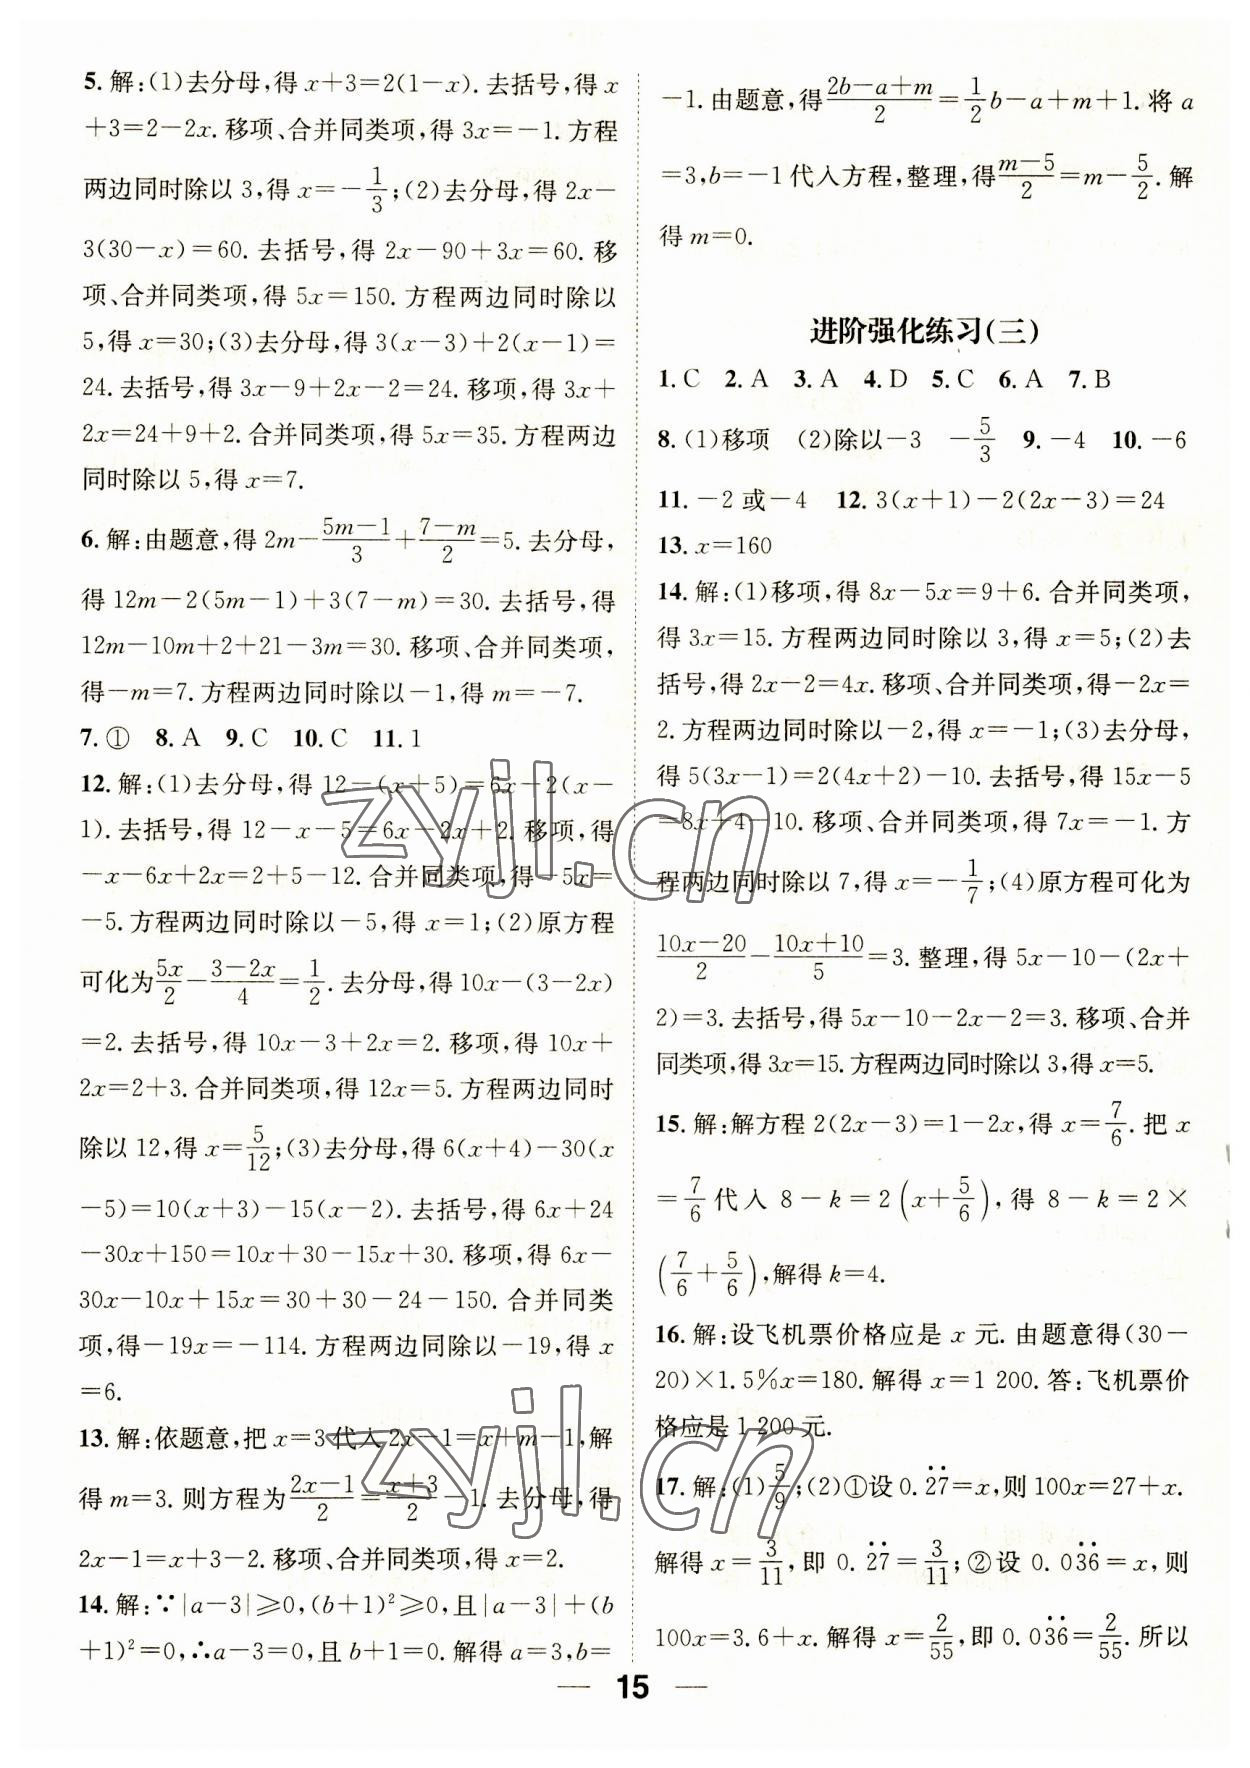 5. 解:(1)去分母,得 x+3=2(1-x). 去括号,得 x
+3=2-2x. 移项、合并同类项,得 3x=-1. 方程
两边同时除以 3,得 x=-1/3;(2)去分母,得 2x-
3(30-x)=60. 去括号,得 2x-90+3x=60. 移
项、合并同类项,得 5x=150. 方程两边同时除以
5,得 x=30;(3)去分母,得 3(x-3)+2(x-1)=
24. 去括号,得 3x-9+2x-2=24. 移项,得 3x+
2x=24+9+2. 合并同类项,得 5x=35. 方程两边
同时除以 5,得 x=7.
6. 解:由题意,得 2m-(5m-1)/3+(7-m)/2=5. 去分母,
得 12m-2(5m-1)+3(7-m)=30. 去括号,得
12m-10m+2+21-3m=30. 移项、合并同类项,
得-m=7. 方程两边同时除以-1,得 m=-7.
7. ① 8. A 9. C 10. C 11. 1
12. 解:(1)去分母,得 12-(x+5)=6x-2(x-
1). 去括号,得 12-x-5=6x-2x+2. 移项,得
-x-6x+2x=2+5-12. 合并同类项,得-5x=
-5. 方程两边同时除以-5,得 x=1;(2)原方程
可化为5x/2-(3-2x)/4=1/2. 去分母,得 10x-(3-2x)
=2. 去括号,得 10x-3+2x=2. 移项,得 10x+
2x=2+3. 合并同类项,得 12x=5. 方程两边同时
除以 12,得 x=5/12;(3)去分母,得 6(x+4)-30(x
-5)=10(x+3)-15(x-2). 去括号,得 6x+24
-30x+150=10x+30-15x+30. 移项,得 6x-
30x-10x+15x=30+30-24-150. 合并同类
项,得-19x=-114. 方程两边同除以-19,得 x
=6.
13. 解:依题意,把 x=3 代入 2x-1=x+m-1,解
得 m=3. 则方程为(2x-1)/2=(x+3)/2-1. 去分母,得
2x-1=x+3-2. 移项、合并同类项,得 x=2.
14. 解:∵|a-3|≥0,(b+1)²≥0,且|a-3|+(b
+1)²=0,∴a-3=0,且 b+1=0. 解得 a=3,b=
-1. 由题意,得(2b-a+m)/2=1/2b-a+m+1. 将 a
=3,b=-1 代入方程,整理,得(m-5)/2=m-5/2. 解
得 m=0.
进阶强化练习(三)
1. C 2. A 3. A 4. D 5. C 6. A 7. B
8. (1)移项 (2)除以-3 -5/3 9. -4 10. -6
11. -2 或-4 12. 3(x+1)-2(2x-3)=24
13. x=160
14. 解:(1)移项,得 8x-5x=9+6. 合并同类项,
得 3x=15. 方程两边同时除以 3,得 x=5;(2)去
括号,得 2x-2=4x. 移项、合并同类项,得-2x=
2. 方程两边同时除以-2,得 x=-1;(3)去分母,
得 5(3x-1)=2(4x+2)-10. 去括号,得 15x-5
=8x+4-10. 移项、合并同类项,得 7x=-1. 方
程两边同时除以 7,得 x=-1/7;(4)原方程可化为
(10x-20)/2-(10x+10)/5=3. 整理,得 5x-10-(2x+
2)=3. 去括号,得 5x-10-2x-2=3. 移项、合并
同类项,得 3x=15. 方程两边同时除以 3,得 x=5.
15. 解:解方程 2(2x-3)=1-2x,得 x=7/6. 把 x
=7/6 代入 8-k=2(x+5/6),得 8-k=2×
(7/6+5/6),解得 k=4.
16. 解:设飞机票价格应是 x 元. 由题意得(30-
20)×1.5%x=180. 解得 x=1 200. 答:飞机票价
格应是 1 200 元.
17. 解:(1)5/9;(2)①设 0.2̇7̇=x,则 100x=27+x.
解得 x=3/11,即 0.2̇7̇=3/11;②设 0.03̇6̇=x,则
100x=3.6+x. 解得 x=2/55,即 0.03̇6̇=2/55. 所以
15
zyjl.cn
zyjl.cn